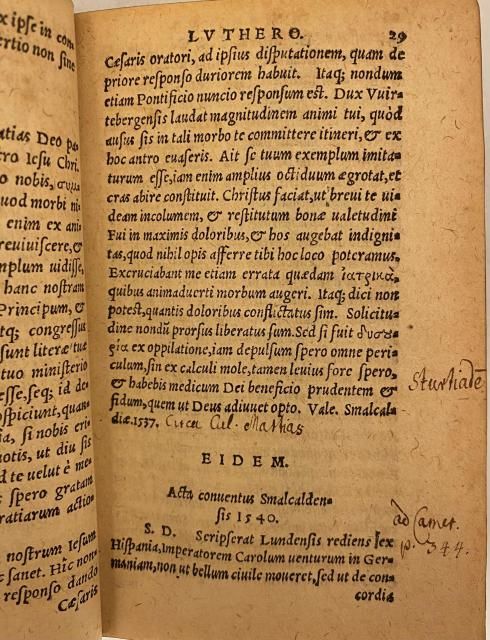 x ipse in com
ertio non sine
atias Deo pa
tro Iesu Chri
o nobis,
quod morbi ni
enim ex ani
reuiuiscere,&
mplum uidisse,
hanc nostram
Principum, &
tq; congressus
sunt literæ tuæ
tuo ministerio
esse,seq; id de
spiciunt,quan
ia, si nobis eri
uotis, ut diu sis
d te uelut è me
spero gratam
ratiarum actio
nostrum Iesum
c sanet. Hic non
responso dando
Cæsaris
LVTHERO. 29
Cæsaris oratori, ad ipsius disputationem, quam de
priore responso duriorem habuit. Itaq; nondum
etiam Pontificio nuncio responsum est. Dux Vuir-
tebergensis laudat magnitudinem animi tui, quòd
ausus sis in tali morbo te committere itineri,& ex
hoc antro euaseris. Ait se tuum exemplum imita-
turum esse,iam enim amplius octiduum ægrotat,et
cras abire constituit. Christus faciat,ut breui te ui-
deam incolumem, & restitutum bonæ ualetudini
Fui in maximis doloribus,& hos augebat indigni-
tas,quod nihil opis afferre tibi hoc loco poteramus.
Excruciabant me etiam errata quædam ἰατρικὰ,
quibus animaduerti morbum augeri. Itaq; dici non
potest,quantis doloribus conflictatus sim. Solicitu-
dine nondū prorsus liberatus sum.Sed si fuit δυσου-
ρία ex oppilatione,iam depulsum spero omne peri-
culum,sin ex calculi mole,tamen leuius fore spero,
& habebis medicum Dei beneficio prudentem &
fidum,quem ut Deus adiuuet opto. Vale. Smalcal-
diæ.1537. Circa Cal. Mathas
Sturtiadē
EIDEM.
Acta conuentus Smalcalden-
sis 1540.
S. D. Scripserat Lundensis rediens ex
Hispania,Imperatorem Carolum uenturum in Ger-
maniam,non ut bellum ciuile moueret,sed ut de con-
cordia
ad Camer.
p. 344.